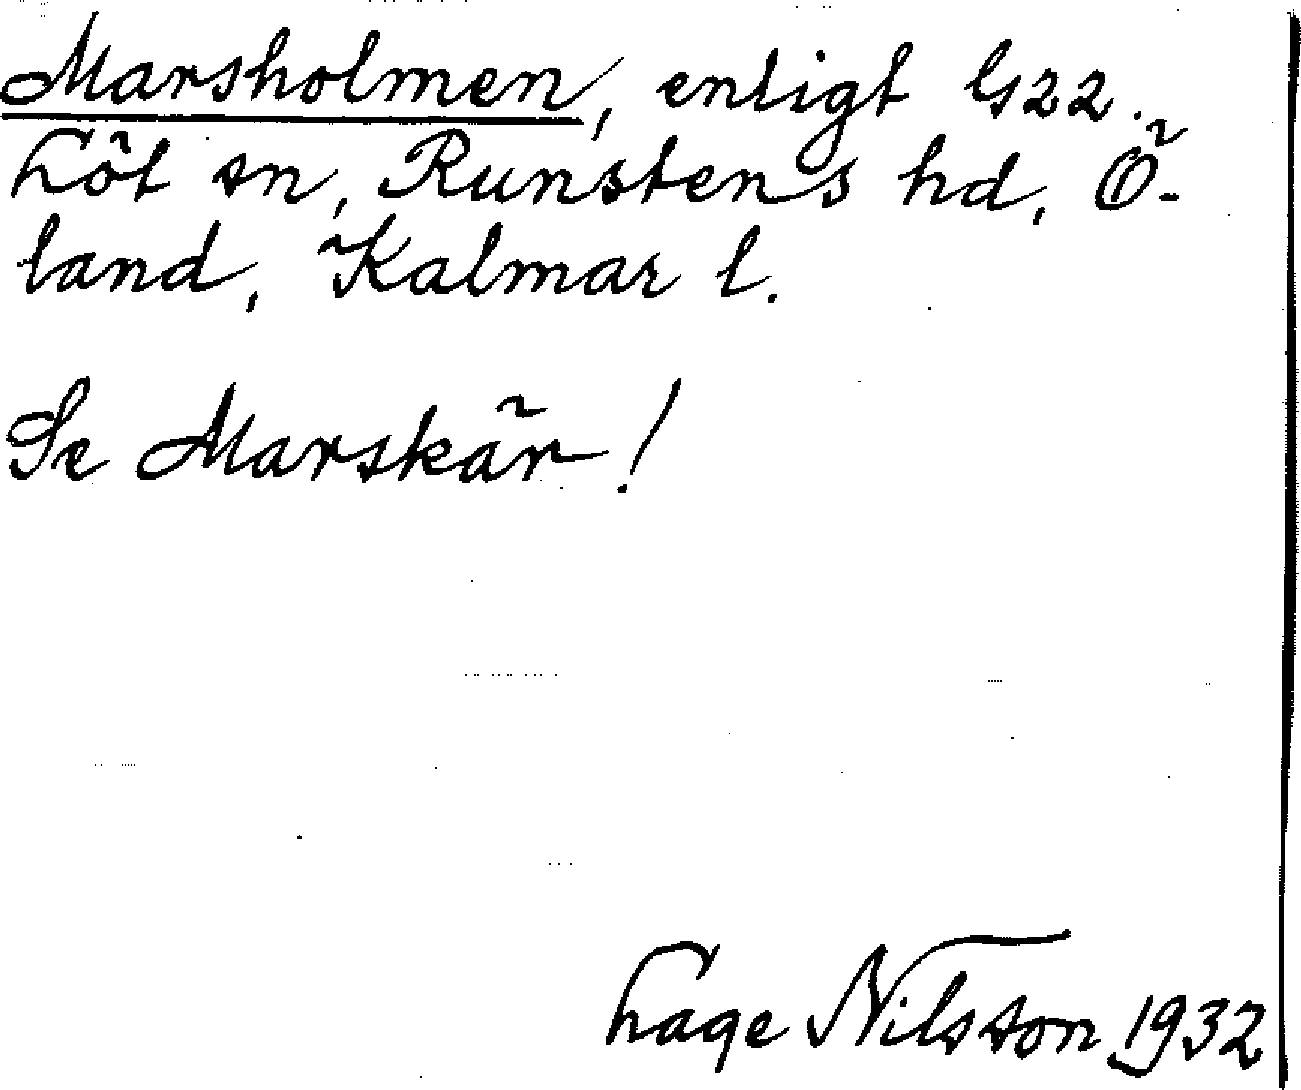 Marsholmen, enligt GS22.
Löt sn, Runstens hd, Ö-
land, Kalmar l.
Se Marskär!
Lage Nilsson 1932